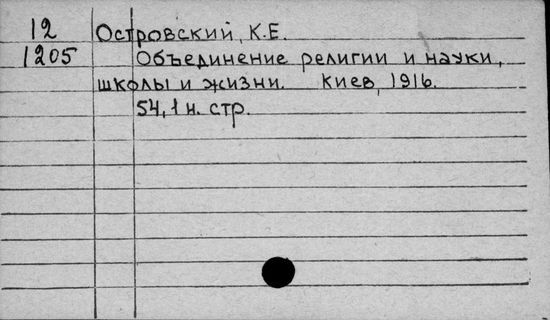 12 Островский, К.Е.
1205 Объединение религии и науки,
школы и жизни. Киев, 1916.
54, 1 н. стр.